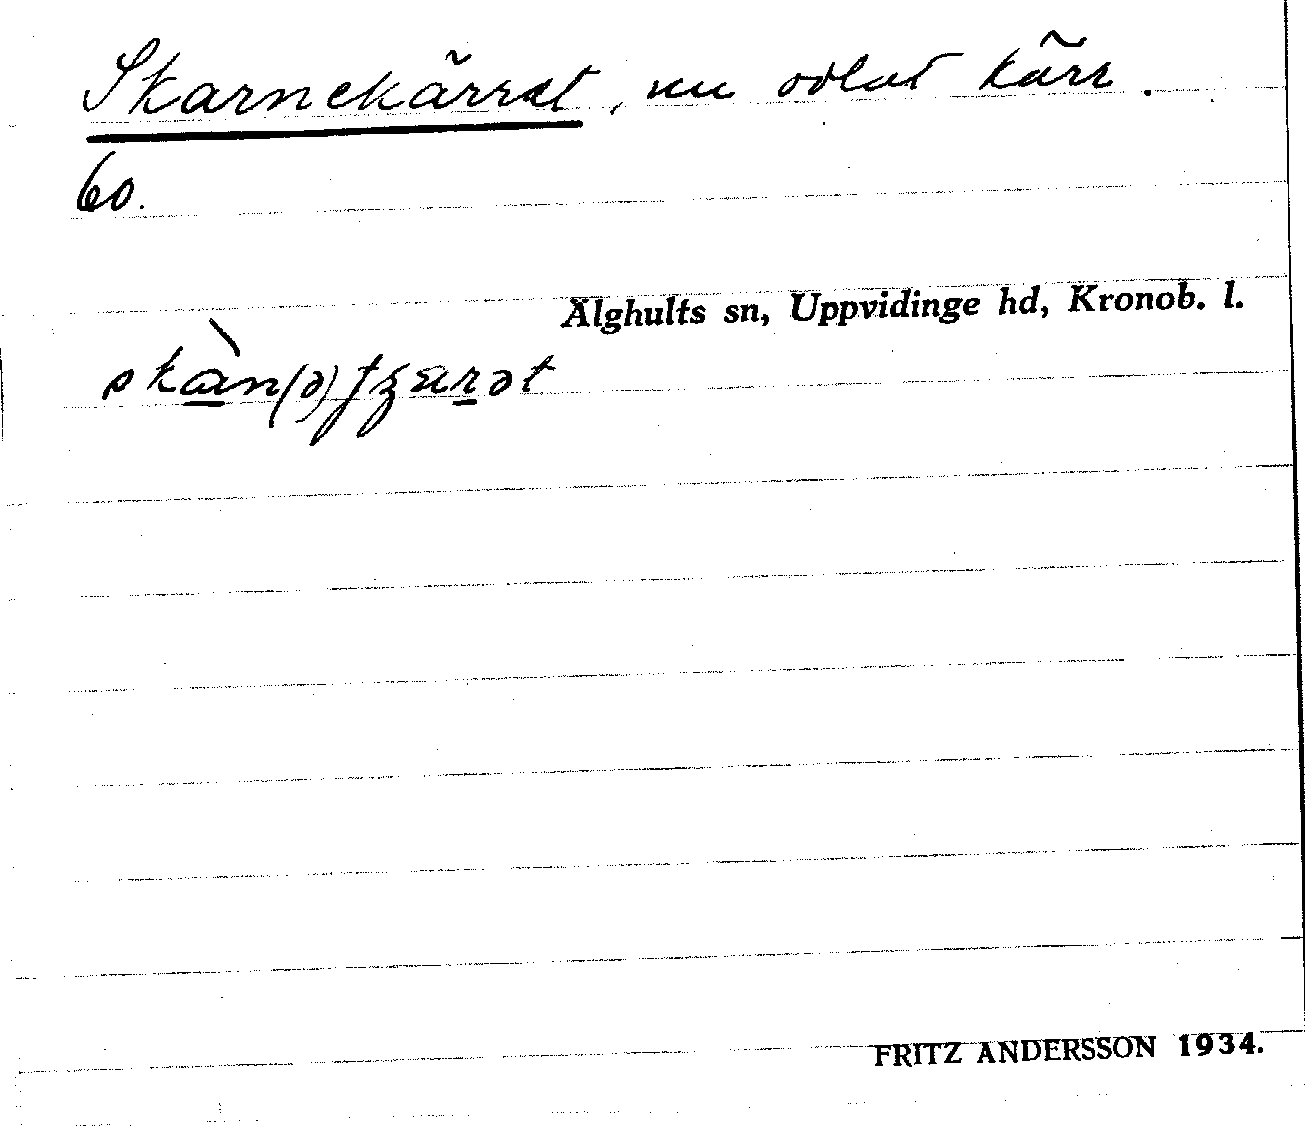 Skarnekärret, nu odlat kärr.
60.
Älghults sn, Uppvidinge hd, Kronob. l.
skàn(ə)ʈʂærət
FRITZ ANDERSSON 1934.